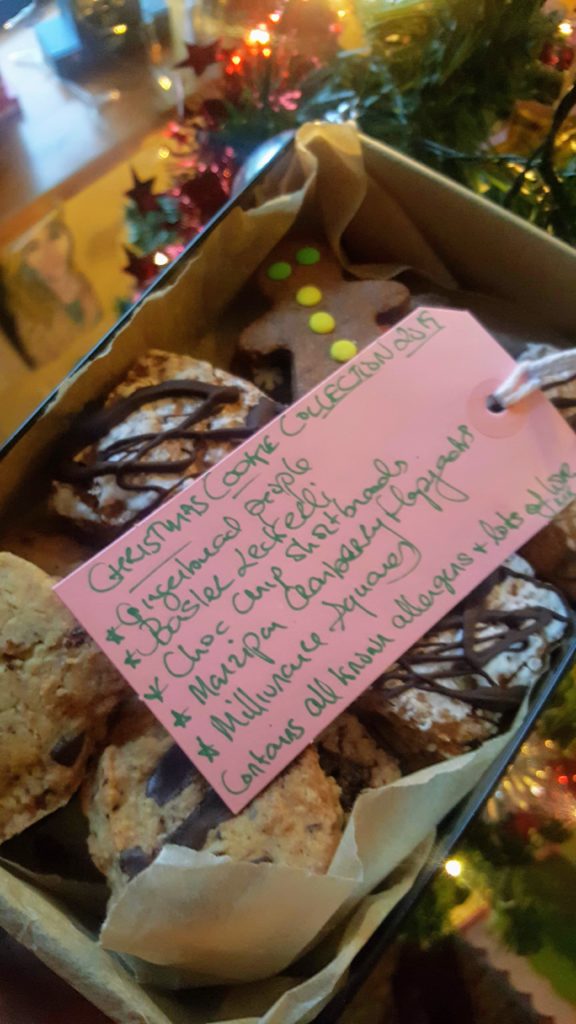 CHRISTMAS COOKIE COLLECTION 2019
* Gingerbread people
* Basler Leckerli
* Choc chip shortbreads
* Marzipan Cranberry Flapjacks
* Millionaire Squares
Contains all known allergens + lots of love